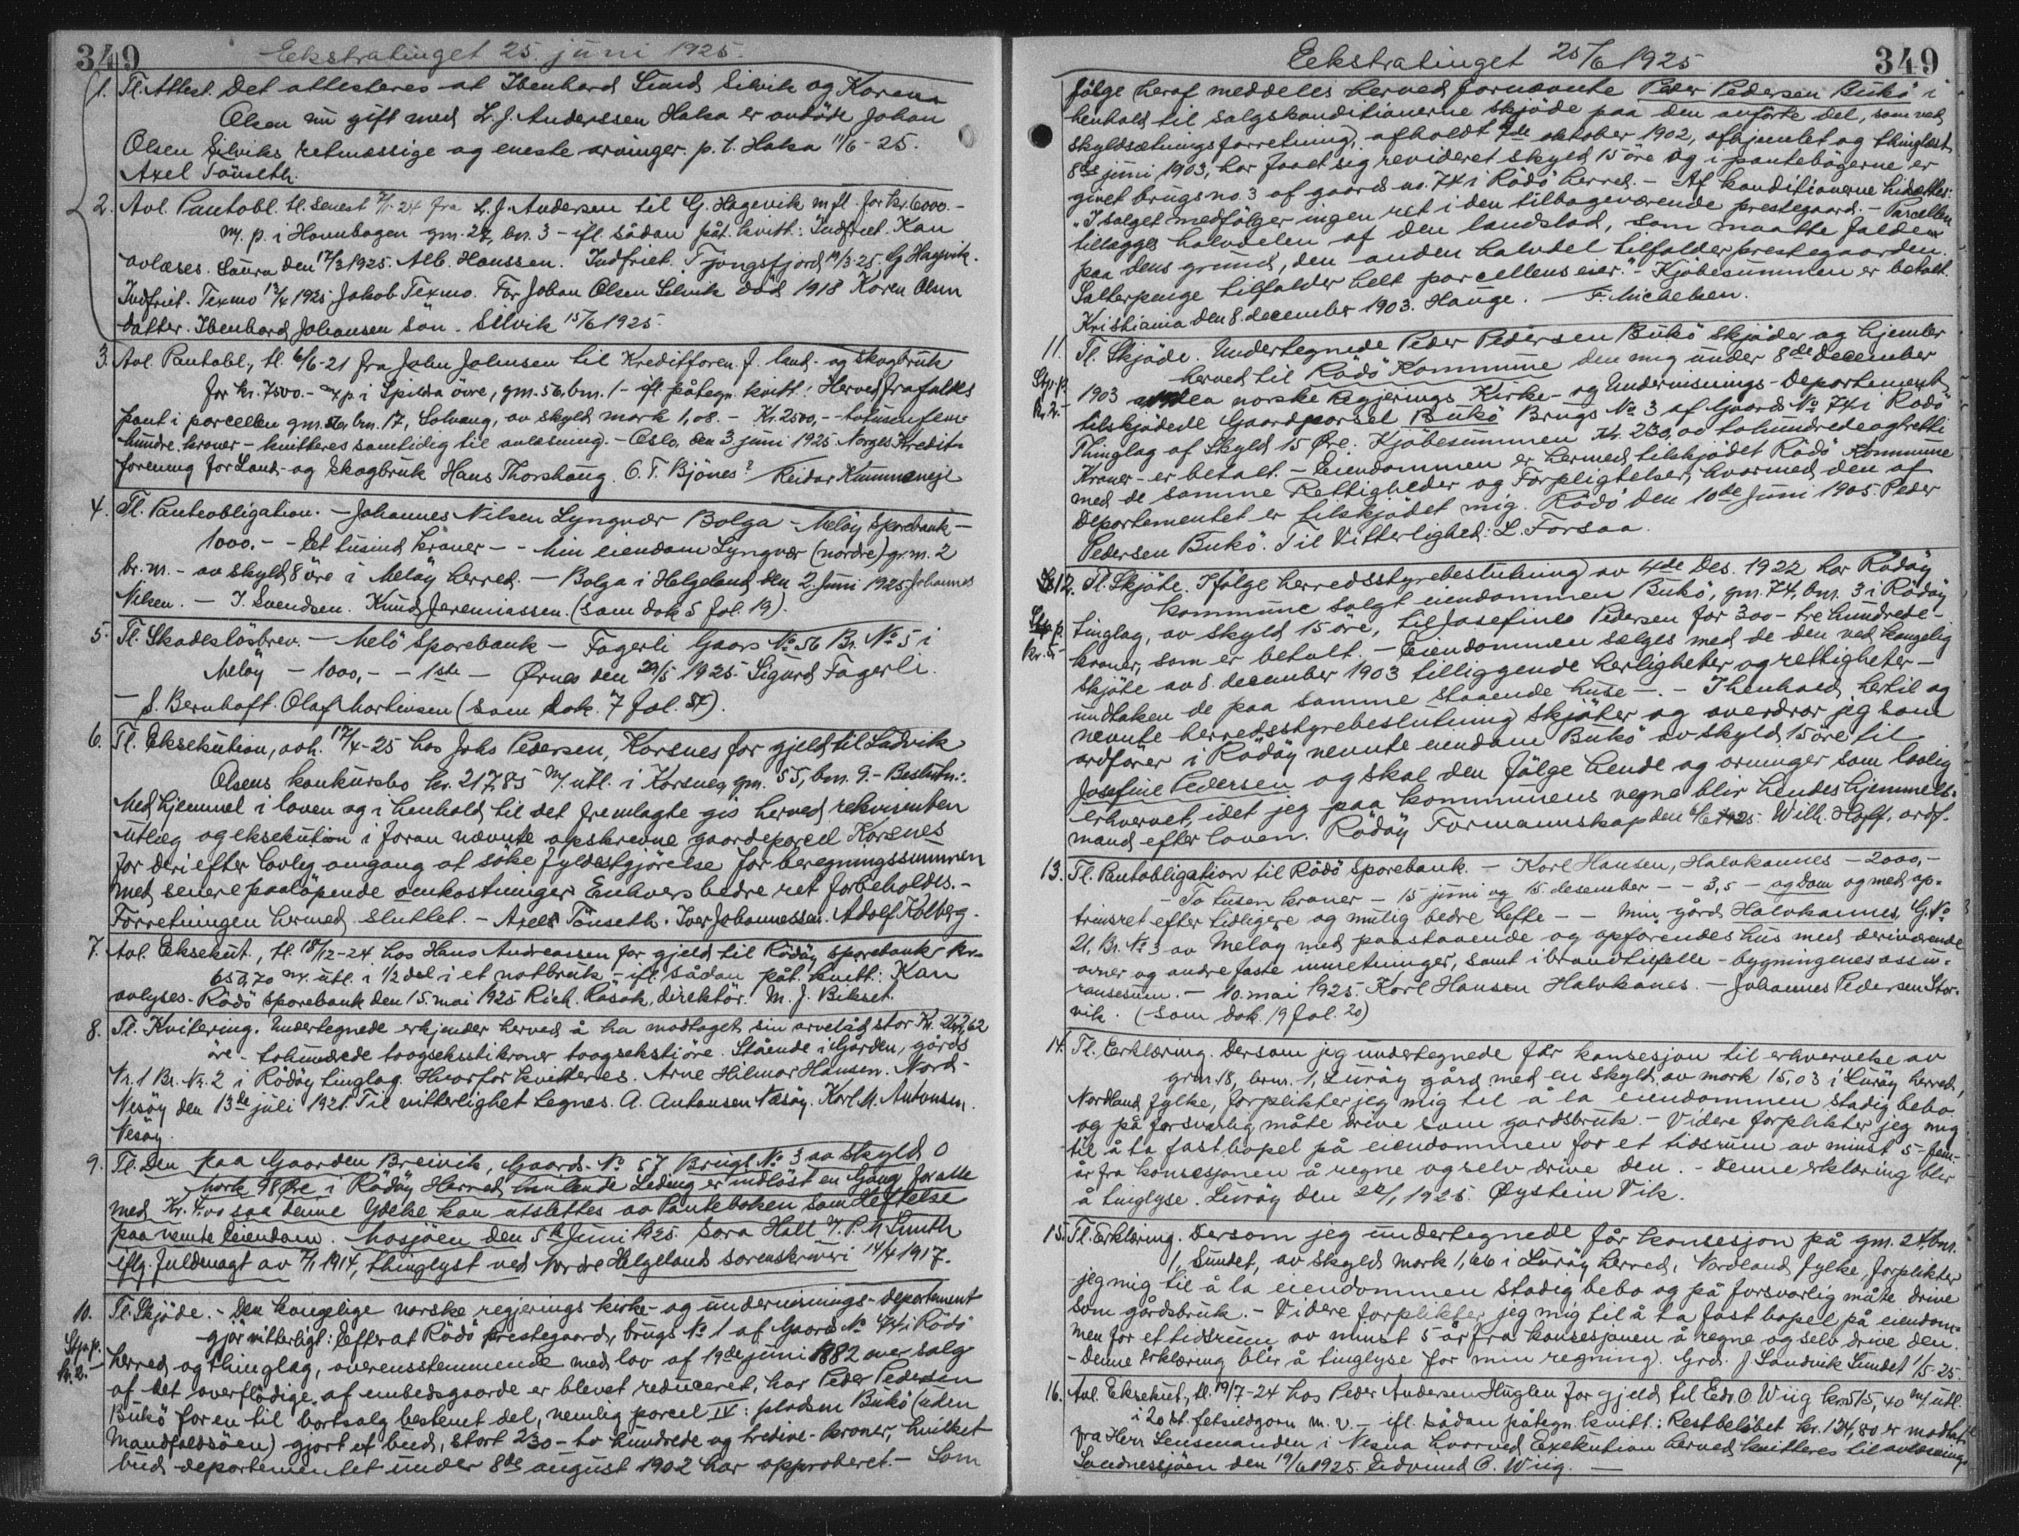 349
Ekstratinget 25. juni 1925.
1. Tl. Attest. Det attesteres at Ibenhard Lund Silvik og Korena
Olsen nu gift med L. J. Anderssen Halsa er avdöde Johan
Olsen Selviks retmæssige og eneste arvinger. p. t. Halsa 11/6-25.
Axel Tönseth.
2. Avl. Pantobl. tl. senest -24 fra L. J. Andersen til G. Hagevik m fl. for kr. 6000.-
m/ p. i Haunbogen gm. 27, bn. 3 - ifl. sådan påt. kvitt: Indfriet. Kan
avlæses. Saura den 17/3 1925. Alb. Hanssen. Indfriet. Tjongsfjord 19/3-25. G Hagevik.
Indfriet. Texmo 13/4 1925 Jakob Texmo. For Johan Olsen Selvik död 1918 Koren Olsen
datter. Ibenhard Johansen sön. Selvik 15/6 1925.
3. Avl. Pantobl., tl. 6/6-21 fra John Johnsen til Kreditforen. f. land- og skogbruk
for kr. 7500.- m/ p i Spildra övre, gm. 56, bm. 1 - ifl påtegn. kvitt: Herved frafaldes
pant i parcellen gm. 56, bm. 17, Solvang, av skyld mark 1,08. - Kr. 2500,- - totusenfem-
hundre kroner - kvitteres samtidig til avlæsning. - Oslo, den 3. juni 1925 Norges Kredit-
forening for Land- og Skogbruk Hans Thorshaug. O. T. Bjönes? Reidar Kummeneje
4. Tl. Panteobligation. - Johannes Nilsen Lyngvær Bolga - Melöy Sparebank -
1000.- - Et tusind kroner - - Min eiendom Lyngvær (nordre) gr.m. 2
br. m. - av skyld 8 öre i Melöy herred. - Bolga i Helgeland den 2. Juni 1925 Johannes
Nilsen. - J. Svendsen. Knud Jeremiassen. (som dok 5 fol. 19).
5. Tl. Skadeslösbrev. - Melö Sparebank - Fagerli Gaars No 56 Br. No 5 i
Melöy - 1000,- - 1ste - Ørnes den 29/5 1925. Sigurd Fagerli.
- J. Bernhoft. Olaf Mortinsen (som dok. 7 fol. 54).
6. Tl. Eksekution, avh. 17/4-25 hos Johs Pedersen, Korsnes for gjeld til Ludvik
Olsens konkursbo kr. 217,85 m/ utl. i Korsnes gm. 55, bm. 9. - Beslutn.:
Med hjemmel i loven og i henhold til det fremlagte gis herved rekvirenten
utlæg og eksekution i foran nævnte opskrevne gaardeparcel Korsnes
for deri efter lovlig omgang at söke fyldestgjörelse for beregningssummen
med senere paalöpende omkostninger Enhvers bedre ret forbeholdes. -
Forretningen hermed sluttet. - Axel Tönseth. Iver Johannessen. Adolf Kolberg.
7. Avl. Eksekut., tl. 18/12-24. hos Hans Andreassen for gjeld til Rödöy sparebank kr.
650,70 m/ utl. i 1/2 del i et notbruk, - ifl. sådan påt. kvitt: Kan
avlyses. Rödö Sparebank den 15. mai 1925 Rich. Råsok, direktör. M. J. Bikset.
8. Tl. Kvitering. Undertegnede erkjender herved å ha modtaget sin arvelåd stor Kr. 262,62
öre - tohundrede toogseksti kroner toogsekstiöre. Stående i Gården, gårds
Nr. 1 Br. Nr. 2 i Rödöy tinglag. Hvorfor kvitteres. Arne Hilmar Hansen. Nord-
Nesöy den 13de juli 1921. Til vitterlighet tegnes. A. Antonsen Nesöy. Karl M. Antonsen.
Nesöy.
9. Tl. Den paa Gaarden Breivik, Gaards- No 57 Brugs No 3 av skyld 0
Mark 98 Öre i Rödöy Herred heilende Leding er indlöst en Gang for alle
med Kr. 4.00 saa denne Ydelse kan utslettes av Panteboken som Heftelse
paa nevnte Eiendom. Mosjöen den 5te Juni 1925 Sara Holl f. P. M. Smith
iflg. fuldmagt av 1914, thinglyst ved Nordre Helgeland sorenskriveri 14/4 1917.
10. Tl. Skjöde. - Den kongelige norske regjerings kirke- og undervisnings-departement
Stp. p. gjör vitterligt: Efter at Rödö prestegaard, brugs No 1 af Gaard No 74 i Rödö
kr. 2.- herred og thinglag, overensstemmende med lov af 19de juni 1882 over salg
af det overflödige af embedsgaarde er blevet reduceret, har Peder Pedersen
Bukö for en til bortsalg bestemt del, nemlig parcel IV: pladsen Bukö (uden
Mandfaldsöen) gjort et bud, stort 230 - to hundrede og tredive - kroner, hvilket
bud departementet under 8de august 1902 har approberet. - Som
Eekstratinget 25/6 1925
349
fölge heraf meddeles herved fornævnte Peder Pedersen Bukö i
henhold til salgskonditionerne skjöde paa den anförte del, som ved
skyldsætningsforretning, afholdt 9de oktober 1902, afhjemlet og thinglæst
8de juni 1903, har faaet sig revideret skyld 15 öre og i pantebögerne er
givet brugsno. 3 af gaards no. 74 i Rödö herred. - Af konditionerne hidsættes:
"I salget medfölger ingen ret i den tilbageværende prestegaard. - Parcellen
tillægges halvdelen af den landslod, som maatte falde
paa dens grund, den anden halvdel tilfalder prestegaarden.
Salterpenge tilfalder helt parcellens eier." - Kjöbesummen er betalt.
Kristiania den 8. december 1903. Hauge. - F. Michelsen.
11. Tl. Skjöde. Undertegnede Peder Pedersen Bukö skjöder og hjemler
Stp. p. herved til Rödö Kommune den mig under 8de December
kr. 2.- 1903 den norske Regjerings Kirke- og Undervisnings-Departement
tilskjödede Gaardparsel Bukö Brugs No 3 af Gaards No 74 i Rödö
Thinglag af Skyld 15 Øre. Kjöbesummen Kr. 230, to hundredeogtretti
Kroner - er betalt. - Eiendommen er hermed tilskjödet Rödö Kommune
med de samme Rettigheder og Forpligtelser, hvormed den af
Departementet er tilskjödet mig. Rödö den 10de Juni 1905. Peder
Pedersen Bukö. Til Vitterlighed: L. Forsaa.
12. Tl. Skjöte. Ifölge herredsstyrebeslutning av 4de Des. 1922 har Rödöy
kommune solgt eiendommen Bukö, gm. 74, bm. 3 i Rödöy
Stp. p. tinglag, av skyld 15 öre, til Josefine Pedersen for 300 - tre hundrede -
kr. kroner, som er betalt. - Eiendommen selges med de den ved kongelig
skjöte av 8. december 1903 tilliggende herligheter og rettigheter -
undtaken de paa samme staaende huse -. - I henhold hertil og
nevnte herredsstyrebeslutning skjöter og overdrar jeg som
ordförer i Rödöy nevnte eiendom Bukö av skyld 15 öre til
Josefine Pedersen og skal den fölge hende og arvinger som lovlig
erhvervet, idet jeg paa kommunens vegne blir hendes hjemmels-
mand efter loven. Rödöy Formannskap den 6/6 1925. Wilh. Hoff. ordf.
13. Tl. Pantobligation til Rödö Sparebank. - Karl Hansen, Halvkannes - 2000,-
- To tusen kroner - 15 juni og 15. desember - - 3,5 - og Dom og med op-
trinsret efter tidligere og mulig bedre hefte - - Min gård Halvkannes, G. No
21, Br. No 3 av Melöy med paastaaende og opförendes hus med deriværende
ovner og andre faste innretninger, samt i brandtilfelle - bygningenes assu-
ransesum. - 10. mai 1925. Karl Hansen Halvkanes. - Johannes Pedersen Stor-
vik. (- som dok. 19 fol. 20)
14. Tl. Erklæring. Dersom jeg undertegnede får konsesjon til erhvervelse av
grm. 18, brm. 1, Luröy gård med en skyld av mark 15,03 i Luröy herred,
Nordland fylke, forplikter jeg mig til å la eiendommen stadig bebo
og på forsvarlig måte drive som gardsbruk. - Videre forplikter jeg mig
til å ta fast bopel på eiendommen for et tidsrum av minst 5 - fem -
år fra konsesjonen å regne og selv drive den. - Denne erklæring blir
å tinglyse. Luröy den 1925. Øystein Vik.
15. Tl. Erklæring. Dersom jeg undertegnede får konsesjon på gm. 24, bm.
1, Sundet, av skyld mark 1,66 i Luröy herred, Nordland fylke, forplikter
jeg mig til å la eiendommen stadig bebo og på forsvarlig måte drive
som gårdsbruk. - Videre forplikter jeg mig til å ta fast bopel på eiendom-
men for et tidsrum av minst 5 år fra konsesjonen å regne og selv drive den.
- Denne erklæring blir å tinglyse for min regning. Grd. J Sandvik Sundet 1/5-25.
16. Avl. Eksekut., tl. 19/7-24 hos Peder Andersen Huglen for gjeld til Edv O Wiig kr. 515,40 m/ utl.
i 20 st. fetsildgarn m. v. - ifl. sådan påtegn. kvitt: Restbelöbet kr. 134,80 er modtat
fra Herr Lensmanden i Nesna hvorved Exekution herved kvitteres til avlæsning.
Sandnessjöen den 19/6 1925. Edvard O. Wiig. -